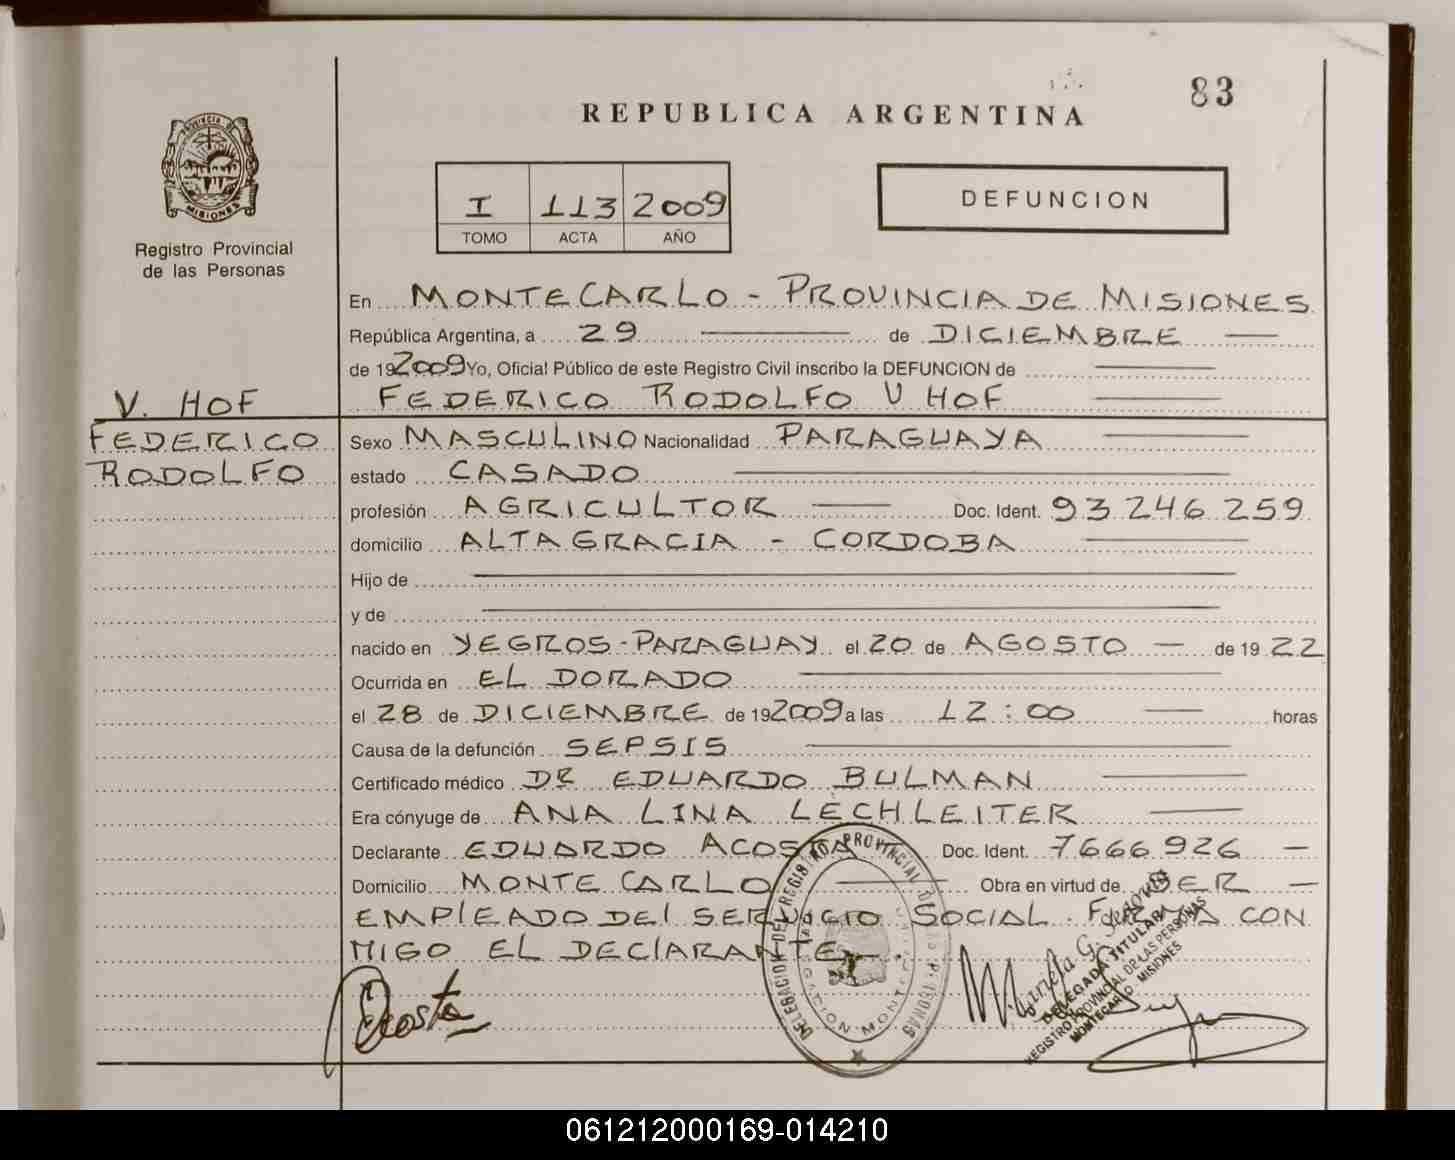 83
REPUBLICA ARGENTINA
PROVINCIA DE MISIONES
Registro Provincial
de las Personas
I 113 2009
TOMO ACTA AÑO
DEFUNCION
En MONTECARLO - PROVINCIA DE MISIONES
República Argentina, a 29 de DICIEMBRE
de 192009 Yo, Oficial Público de este Registro Civil inscribo la DEFUNCION de
V. HOF
FEDERICO RODOLFO V HOF
FEDERICO
RODOLFO
Sexo MASCULINO Nacionalidad PARAGUAYA
estado CASADO
profesión AGRICULTOR Doc. Ident. 93.246.259
domicilio ALTAGRACIA - CORDOBA
Hijo de
y de
nacido en YEGROS - PARAGUAY el 20 de AGOSTO de 1922
Ocurrida en EL DORADO
el 28 de DICIEMBRE de 192009 a las 12:00 horas
Causa de la defunción SEPSIS
Certificado médico DR EDUARDO BULMAN
Era cónyuge de ANA LINA LECHLEITER
Declarante EDUARDO ACOSTA Doc. Ident. 7666926
Domicilio MONTE CARLO Obra en virtud de SER
EMPLEADO DEL SERVICIO SOCIAL. FIRMA CON
MIGO EL DECLARANTE.
Acosta
DELEGACION DEL REGISTRO PROVINCIAL DE LAS PERSONAS
DELEGADA TITULAR
REGISTRO PROVINCIAL DE LAS PERSONAS
MONTECARLO - MISIONES
061212000169-014210